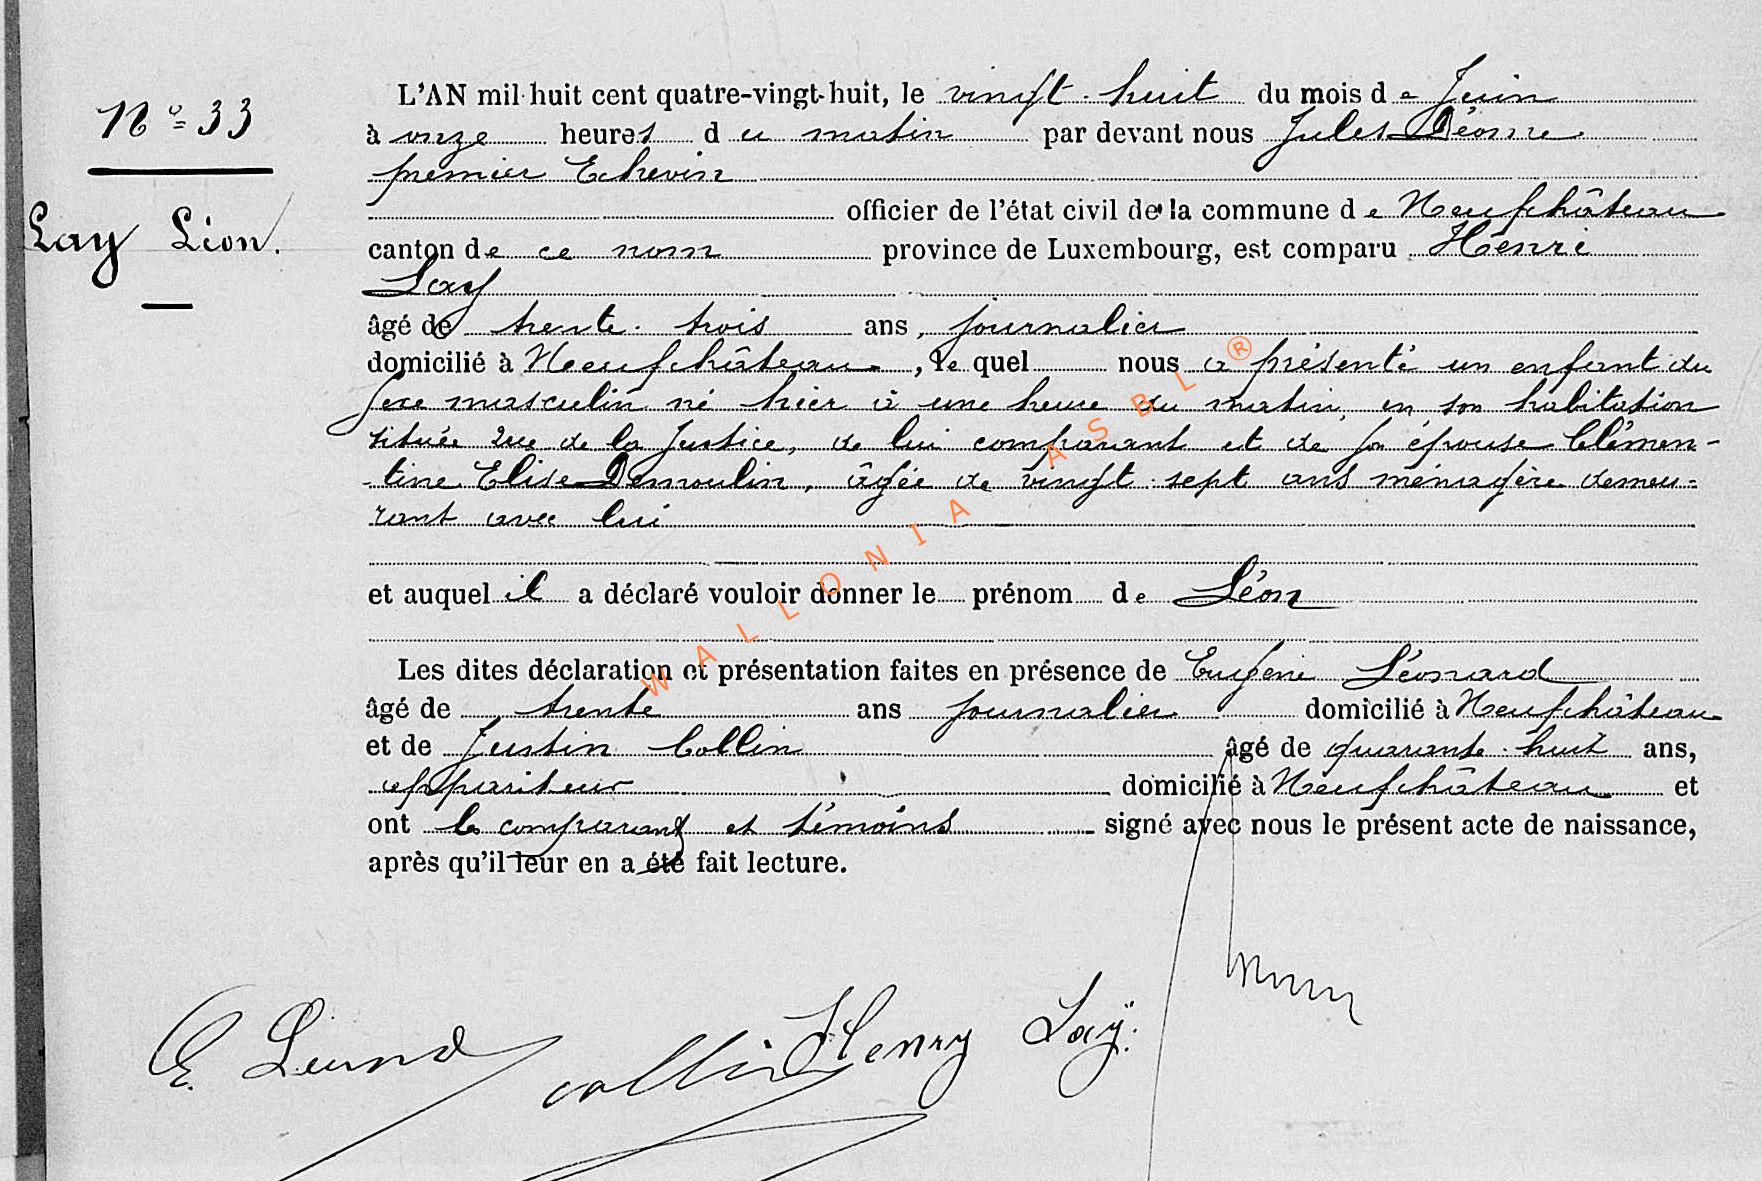 N° 33
Lay Léon.
L'AN mil huit cent quatre-vingt-huit, le vingt-huit du mois de Juin
à onze heures du matin par devant nous Jules
premier Echevin
officier de l'état civil de la commune de Neufchâteau
canton de ce nom province de Luxembourg, est comparu Henri
Lay
âgé de trente-trois ans, journalier
domicilié à Neufchâteau, le quel nous a présenté un enfant du
sexe masculin né hier à une heure du matin, en son habitation
située rue de la Justice, de lui comparant et de son épouse Clémen-
tine Elise Demoulin, âgée de vingt-sept ans ménagère demeu-
rant avec lui
et auquel il a déclaré vouloir donner le prénom de Léon
Les dites déclaration et présentation faites en présence de Eugène Léonard
âgé de trente ans journalier domicilié à Neufchâteau
et de Justin Collin âgé de quarante-huit ans,
appariteur domicilié à Neufchâteau et
ont le comparant et témoins signé avec nous le présent acte de naissance,
après qu'il leur en a été fait lecture.
E. collin Henry Laÿ.
WALLONIA ASBL ®